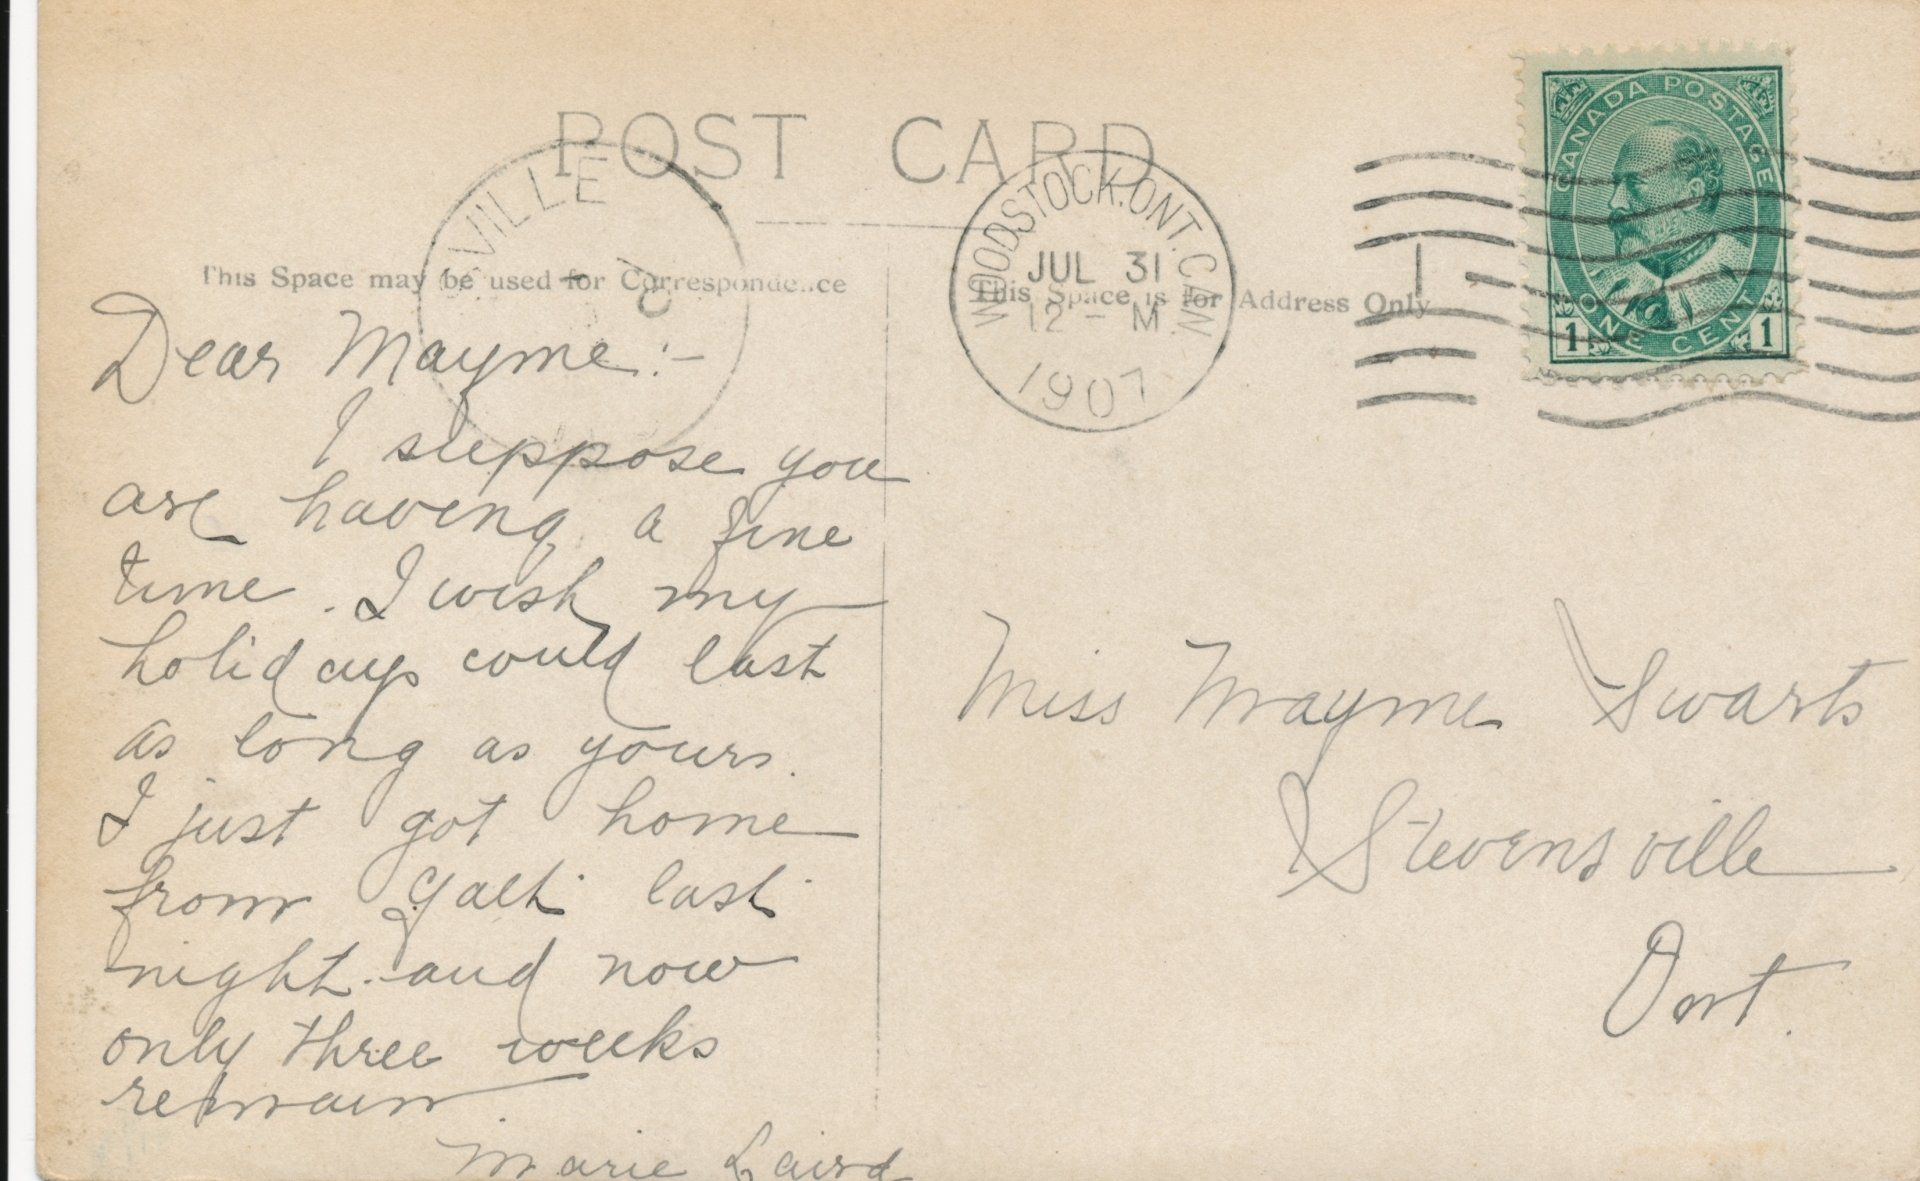 POST CARD
VILLE
WOODSTOCK. ONT. CAN.
JUL 31
12 - M
1907
1
CANADA POSTAGE
ONE CENT
1 1
This Space may be used for Correspondence
This Space is for Address Only
Dear Mayme:-
I suppose you
are having a fine
time. I wish my
holidays could last
as long as yours.
I just got home
from Galt last
night and now
only three weeks
remain.
Marie Laird
Miss Mayme Swarts
Stevensville
Ont.